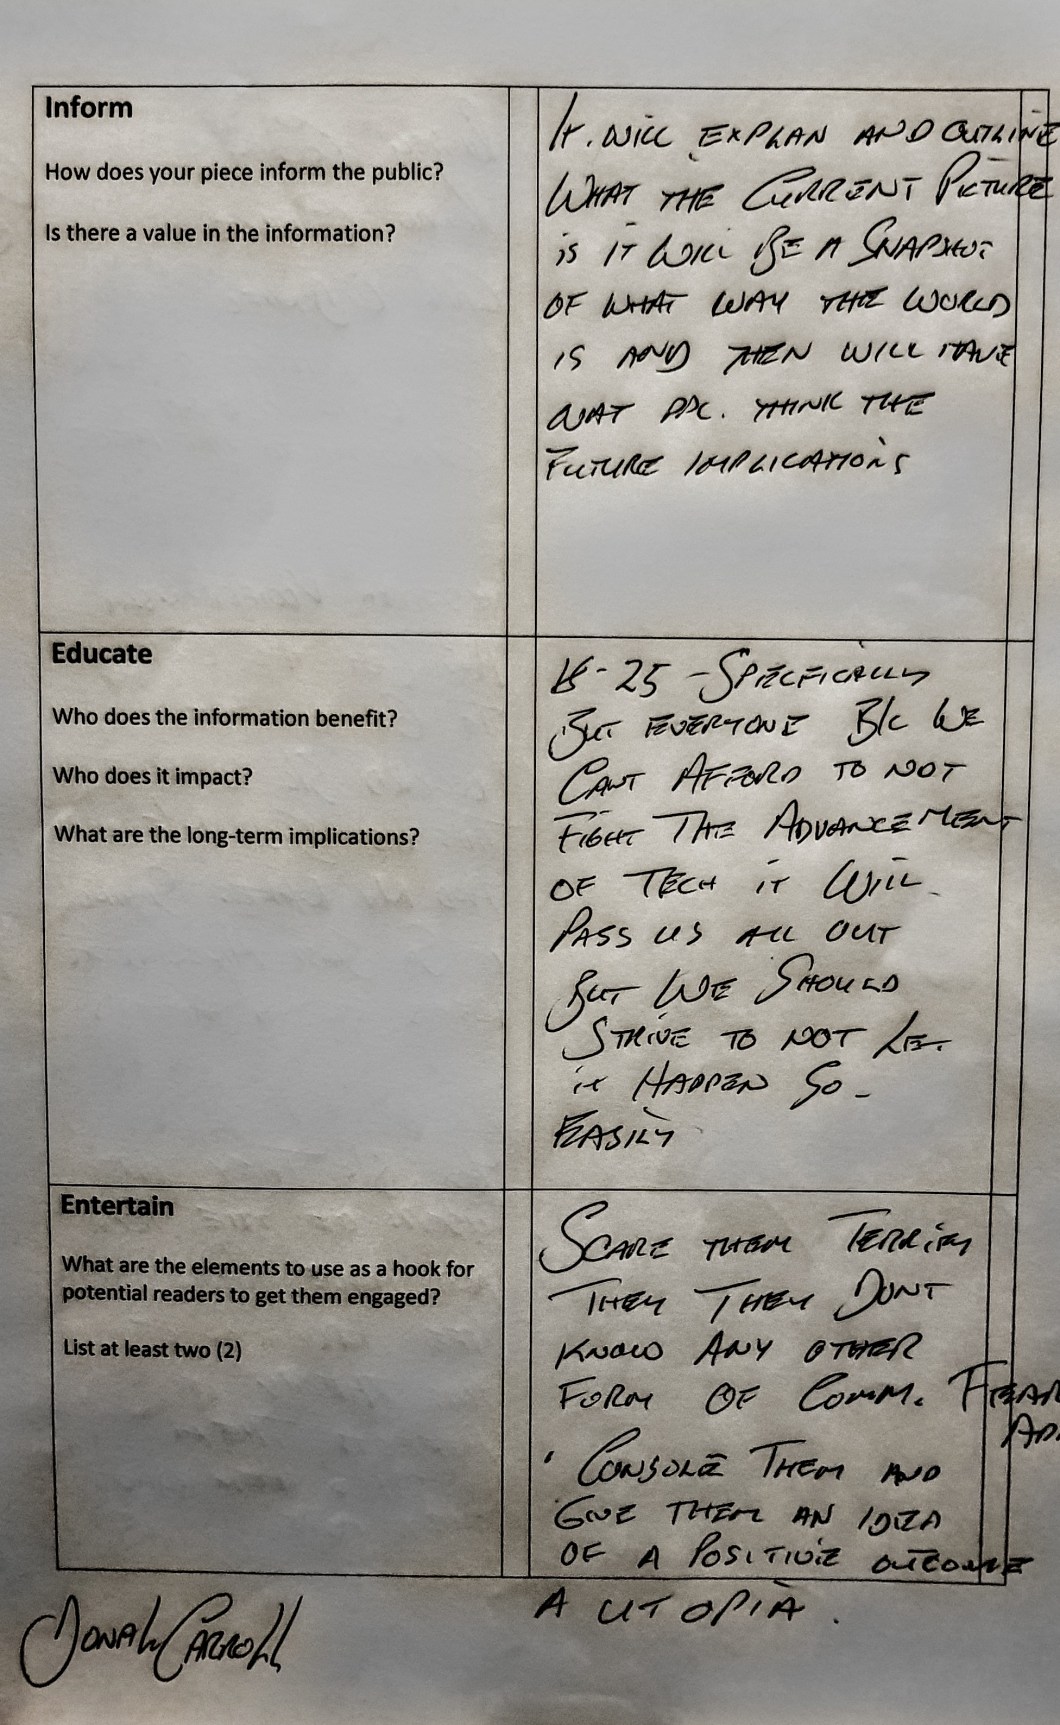 Inform
How does your piece inform the public?
Is there a value in the information?
It. WILL EXPLAN AND OUTLINE
WHAT THE CURRENT PICTURE
is iT WILL BE A SNAPSHOT
OF WHAT WAY THE WORLD
IS AND THEN WILL HAVE
WAT PPL. THINK THE
FUTURE IMPLICATIONS
Educate
Who does the information benefit?
Who does it impact?
What are the long-term implications?
18-25 - SPECFICALLY
BUT EVERYONE B/C WE
CANT AFFORD TO NOT
FIGHT THE ADVANCEMENT
OF TECH iT WILL
PASS US ALL OUT
BUT WE SHOULD
STRIVE TO NOT LET
iT HAPPEN SO -
EASILY
Entertain
What are the elements to use as a hook for
potential readers to get them engaged?
List at least two (2)
SCARE THEM TERRIFY
THEY THEY DONT
KNOW ANY OTHER
FORM OF COMM. FEAR
CONSOLE THEM AND
GIVE THEM AN IDEA
OF A POSITIVE OUTCOME
A UTOPIA.
DONAL CARROLL